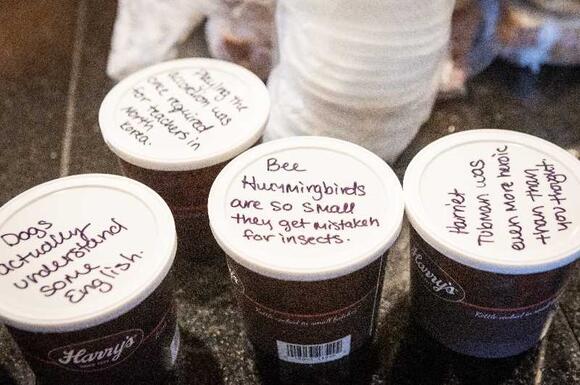 Playing the
accordion was
once required
for teachers in
North
Korea.
Bee
Hummingbirds
are so small
they get mistaken
for insects.
Harriet
Tubman was
even more heroic
than than
you thought
Dogs
actually
understand
some
English.
Harry's
Harry's